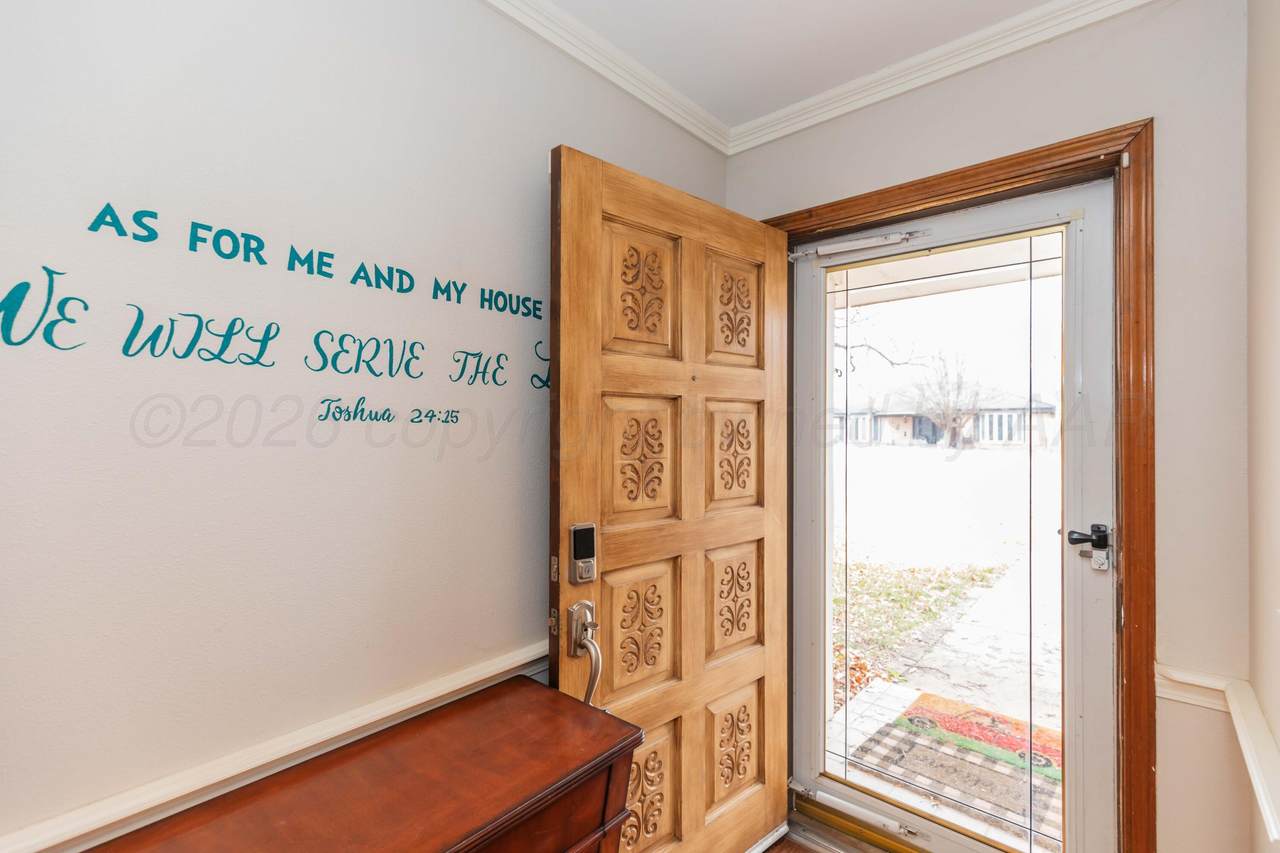 AS FOR ME AND MY HOUSE
WE WILL SERVE THE L
Joshua 24:15
©2026 copyright owned by AAR